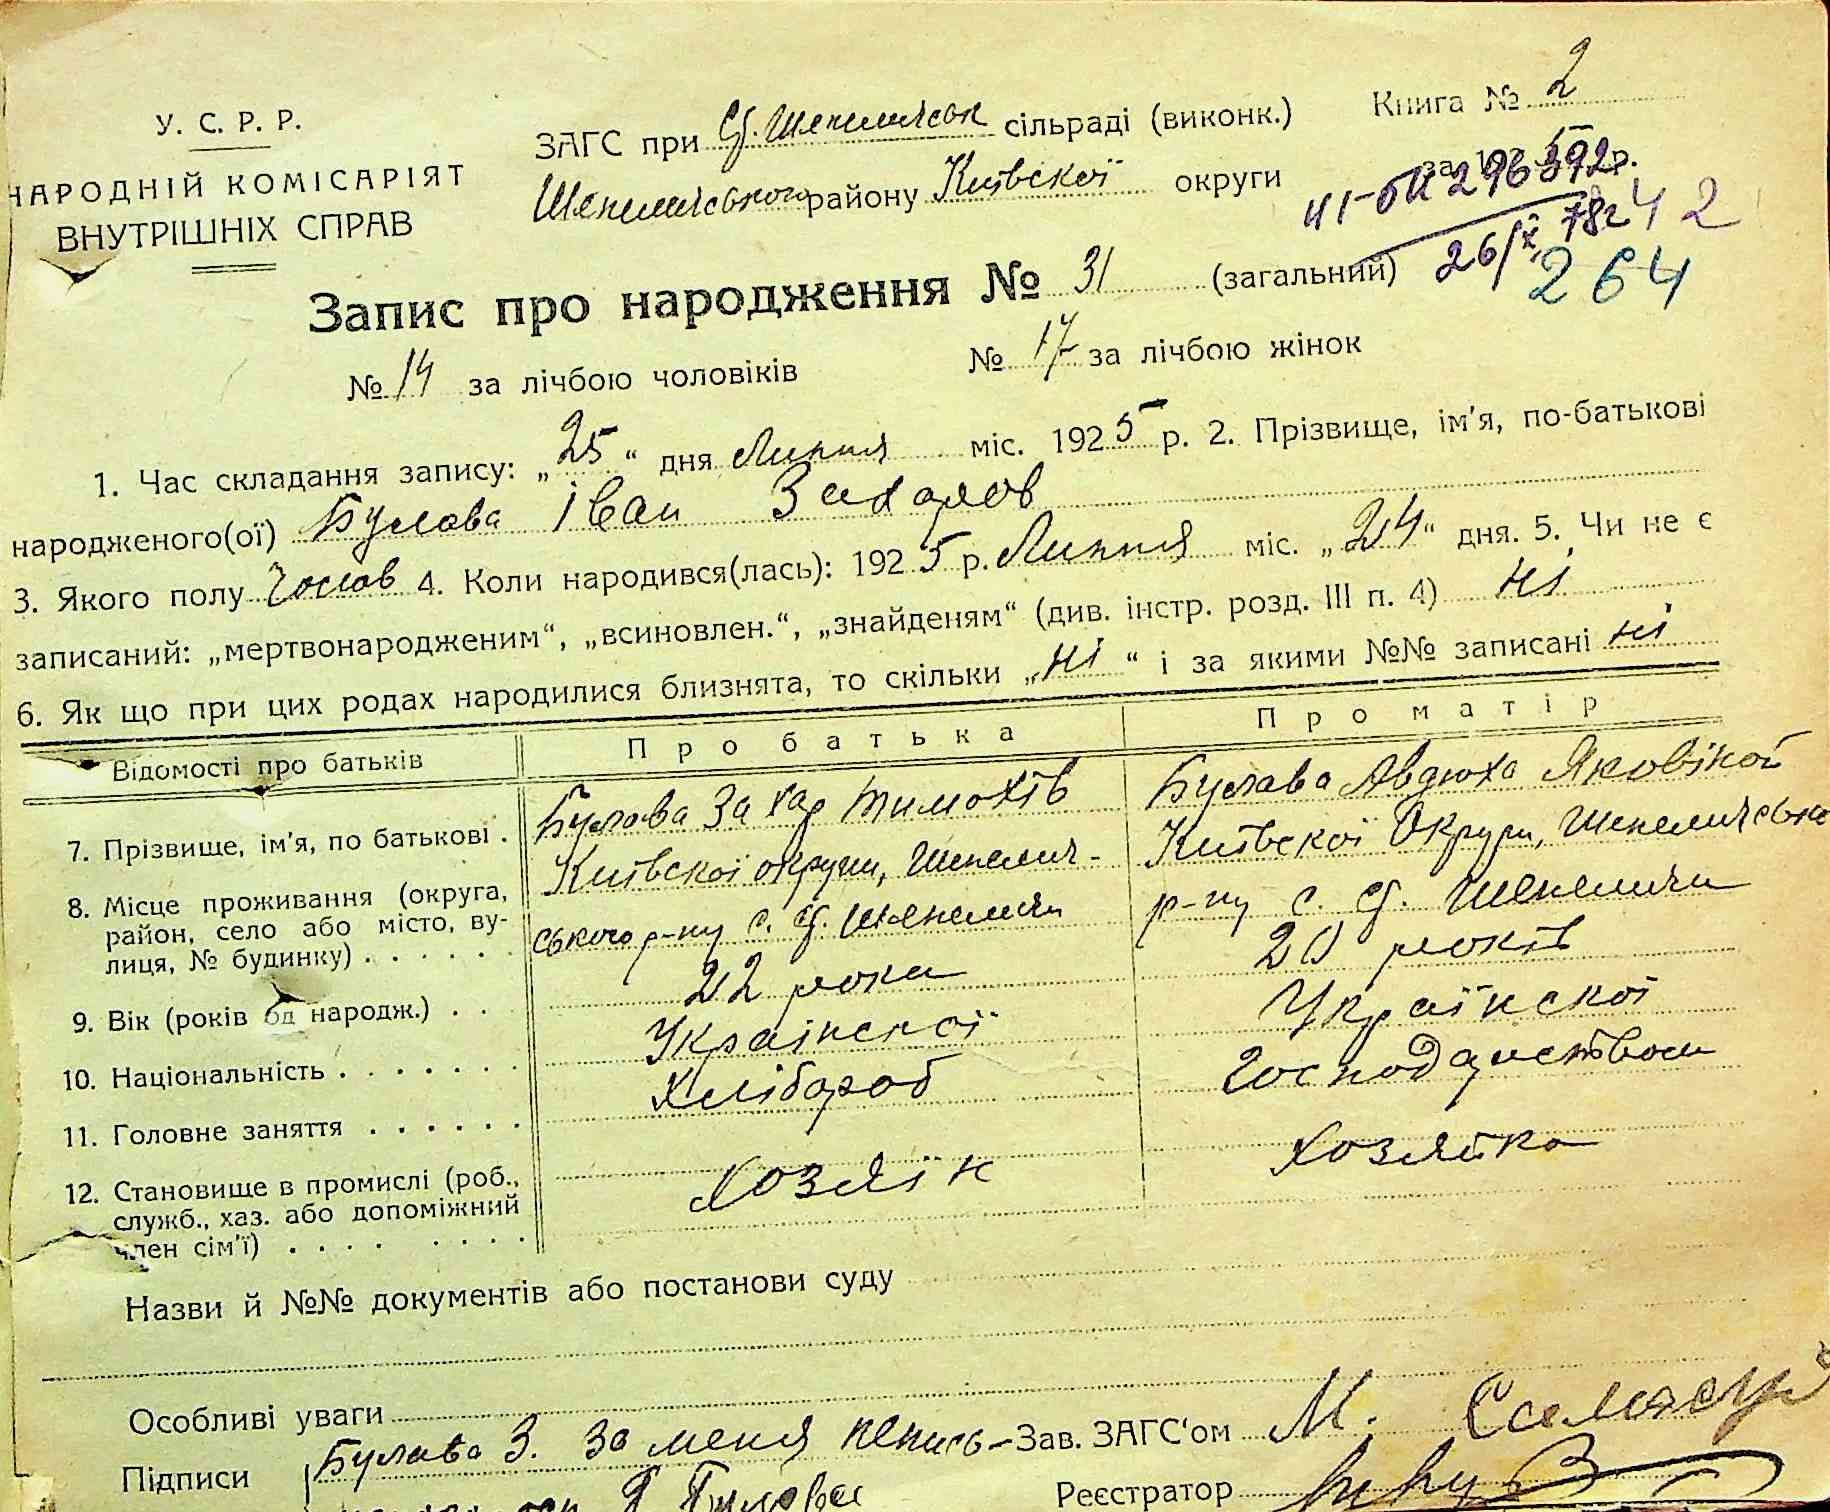 У. С. Р. Р.
НАРОДНІЙ КОМІСАРІЯТ
ВНУТРІШНІХ СПРАВ
ЗАГС при Ст. Шепелицьк сільраді (виконк.)
Книга № 2
Шепелицького району Київскої округи
за 192 5 р.
41-БК 296392
26/X 78г 42
264
Запис про народження № 31 (загальний)
№ 14 за лічбою чоловіків № 17 за лічбою жінок
1. Час складання запису: „25“ дня Липня міс. 1925 р. 2. Прізвище, ім'я, по-батькові
народженого(ої) Булава Іван Захаров
3. Якого полу Чолов 4. Коли народився(лась): 1925 р. Липня міс. „24“ дня. 5. Чи не є
записаний: „мертвонародженим“, „всиновлен.“, „знайденям“ (див. інстр. розд. III п. 4) ні
6. Як що при цих родах народилися близнята, то скільки „ні“ і за якими №№ записані ні
Відомості про батьків
Про батька
Про матір
7. Прізвище, ім'я, по батькові .
Булава Захар Тимохів
Булава Авдюха Яковікой
8. Місце проживання (округа,
район, село або місто, ву-
лиця, № будинку) . . . . . .
Київскої округи, Шепелич-
ського р-ну с. Ст. Шепеличи
Київскої Округи, Шепеличсько
р-ну с. Ст. Шепеличи
9. Вік (років од народж.) . . .
22 роки
20 років
10. Національність . . . . . . .
Українскої
Українскої
11. Головне заняття . . . . . .
Хлібороб
Господарством
12. Становище в промислі (роб.,
служб., хаз. або допоміжний
член сім'ї) . . . . . . . .
Хозяїн
Хозяйка
Назви й №№ документів або постанови суду
Особливі уваги
Підписи
Булава З. За меня
Зав. ЗАГС'ом М.
Булава
Реєстратор